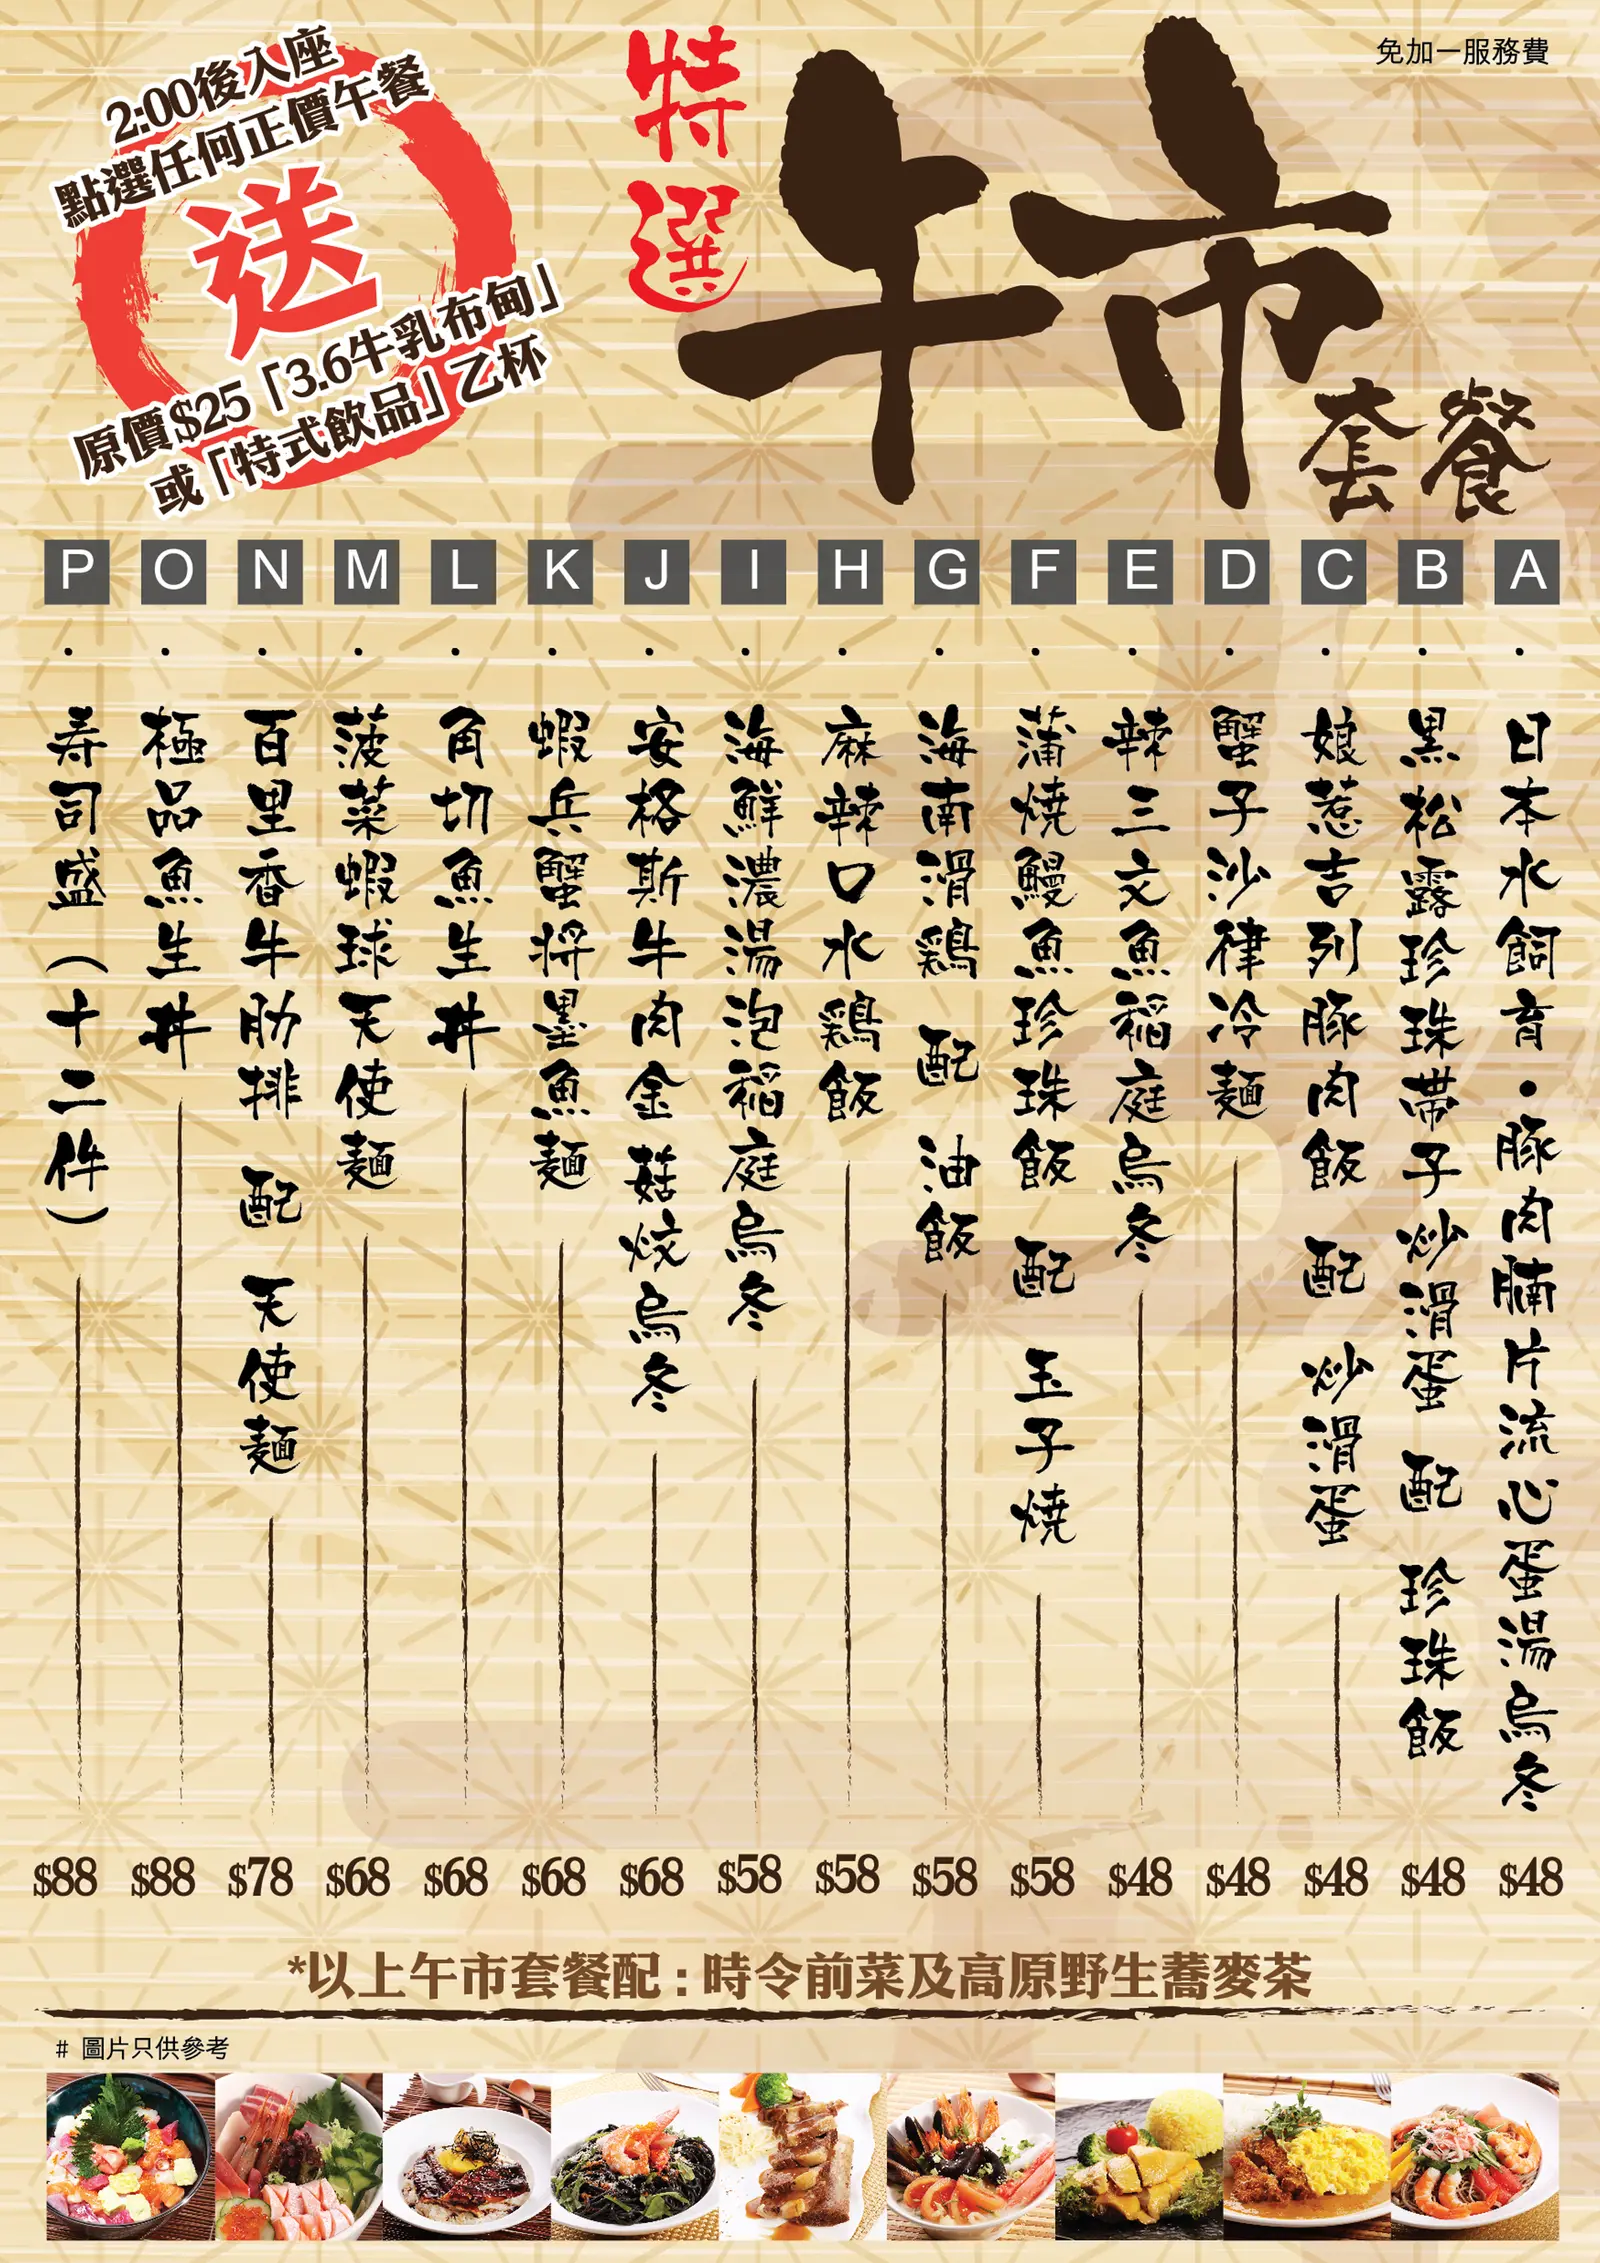 免加一服務費
特選
午市
套餐
2:00後入座
點選任何正價午餐
送
原價$25「3.6牛乳布甸」
或「特式飲品」乙杯
A・日本水飼育・豚肉腩片流心蛋湯烏冬 $48
B・黒松露珍珠帶子炒滑蛋 配 珍珠飯 $48
C・娘惹吉列豚肉飯 配 炒滑蛋 $48
D・蟹子沙律冷麺 $48
E・辣三文魚稲庭烏冬 $48
F・蒲焼鰻魚珍珠飯 配 玉子焼 $58
G・海南滑鶏 配 油飯 $58
H・麻辣口水鶏飯 $58
I・海鮮濃湯泡稲庭烏冬 $58
J・安格斯牛肉金菇炆烏冬 $68
K・蝦兵蟹将墨魚麺 $68
L・角切魚生丼 $68
M・菠菜蝦球天使麺 $68
N・百里香牛肋排 配 天使麺 $78
O・極品魚生丼 $88
P・寿司盛(十二件) $88
*以上午市套餐配:時令前菜及高原野生蕎麥茶
# 圖片只供參考